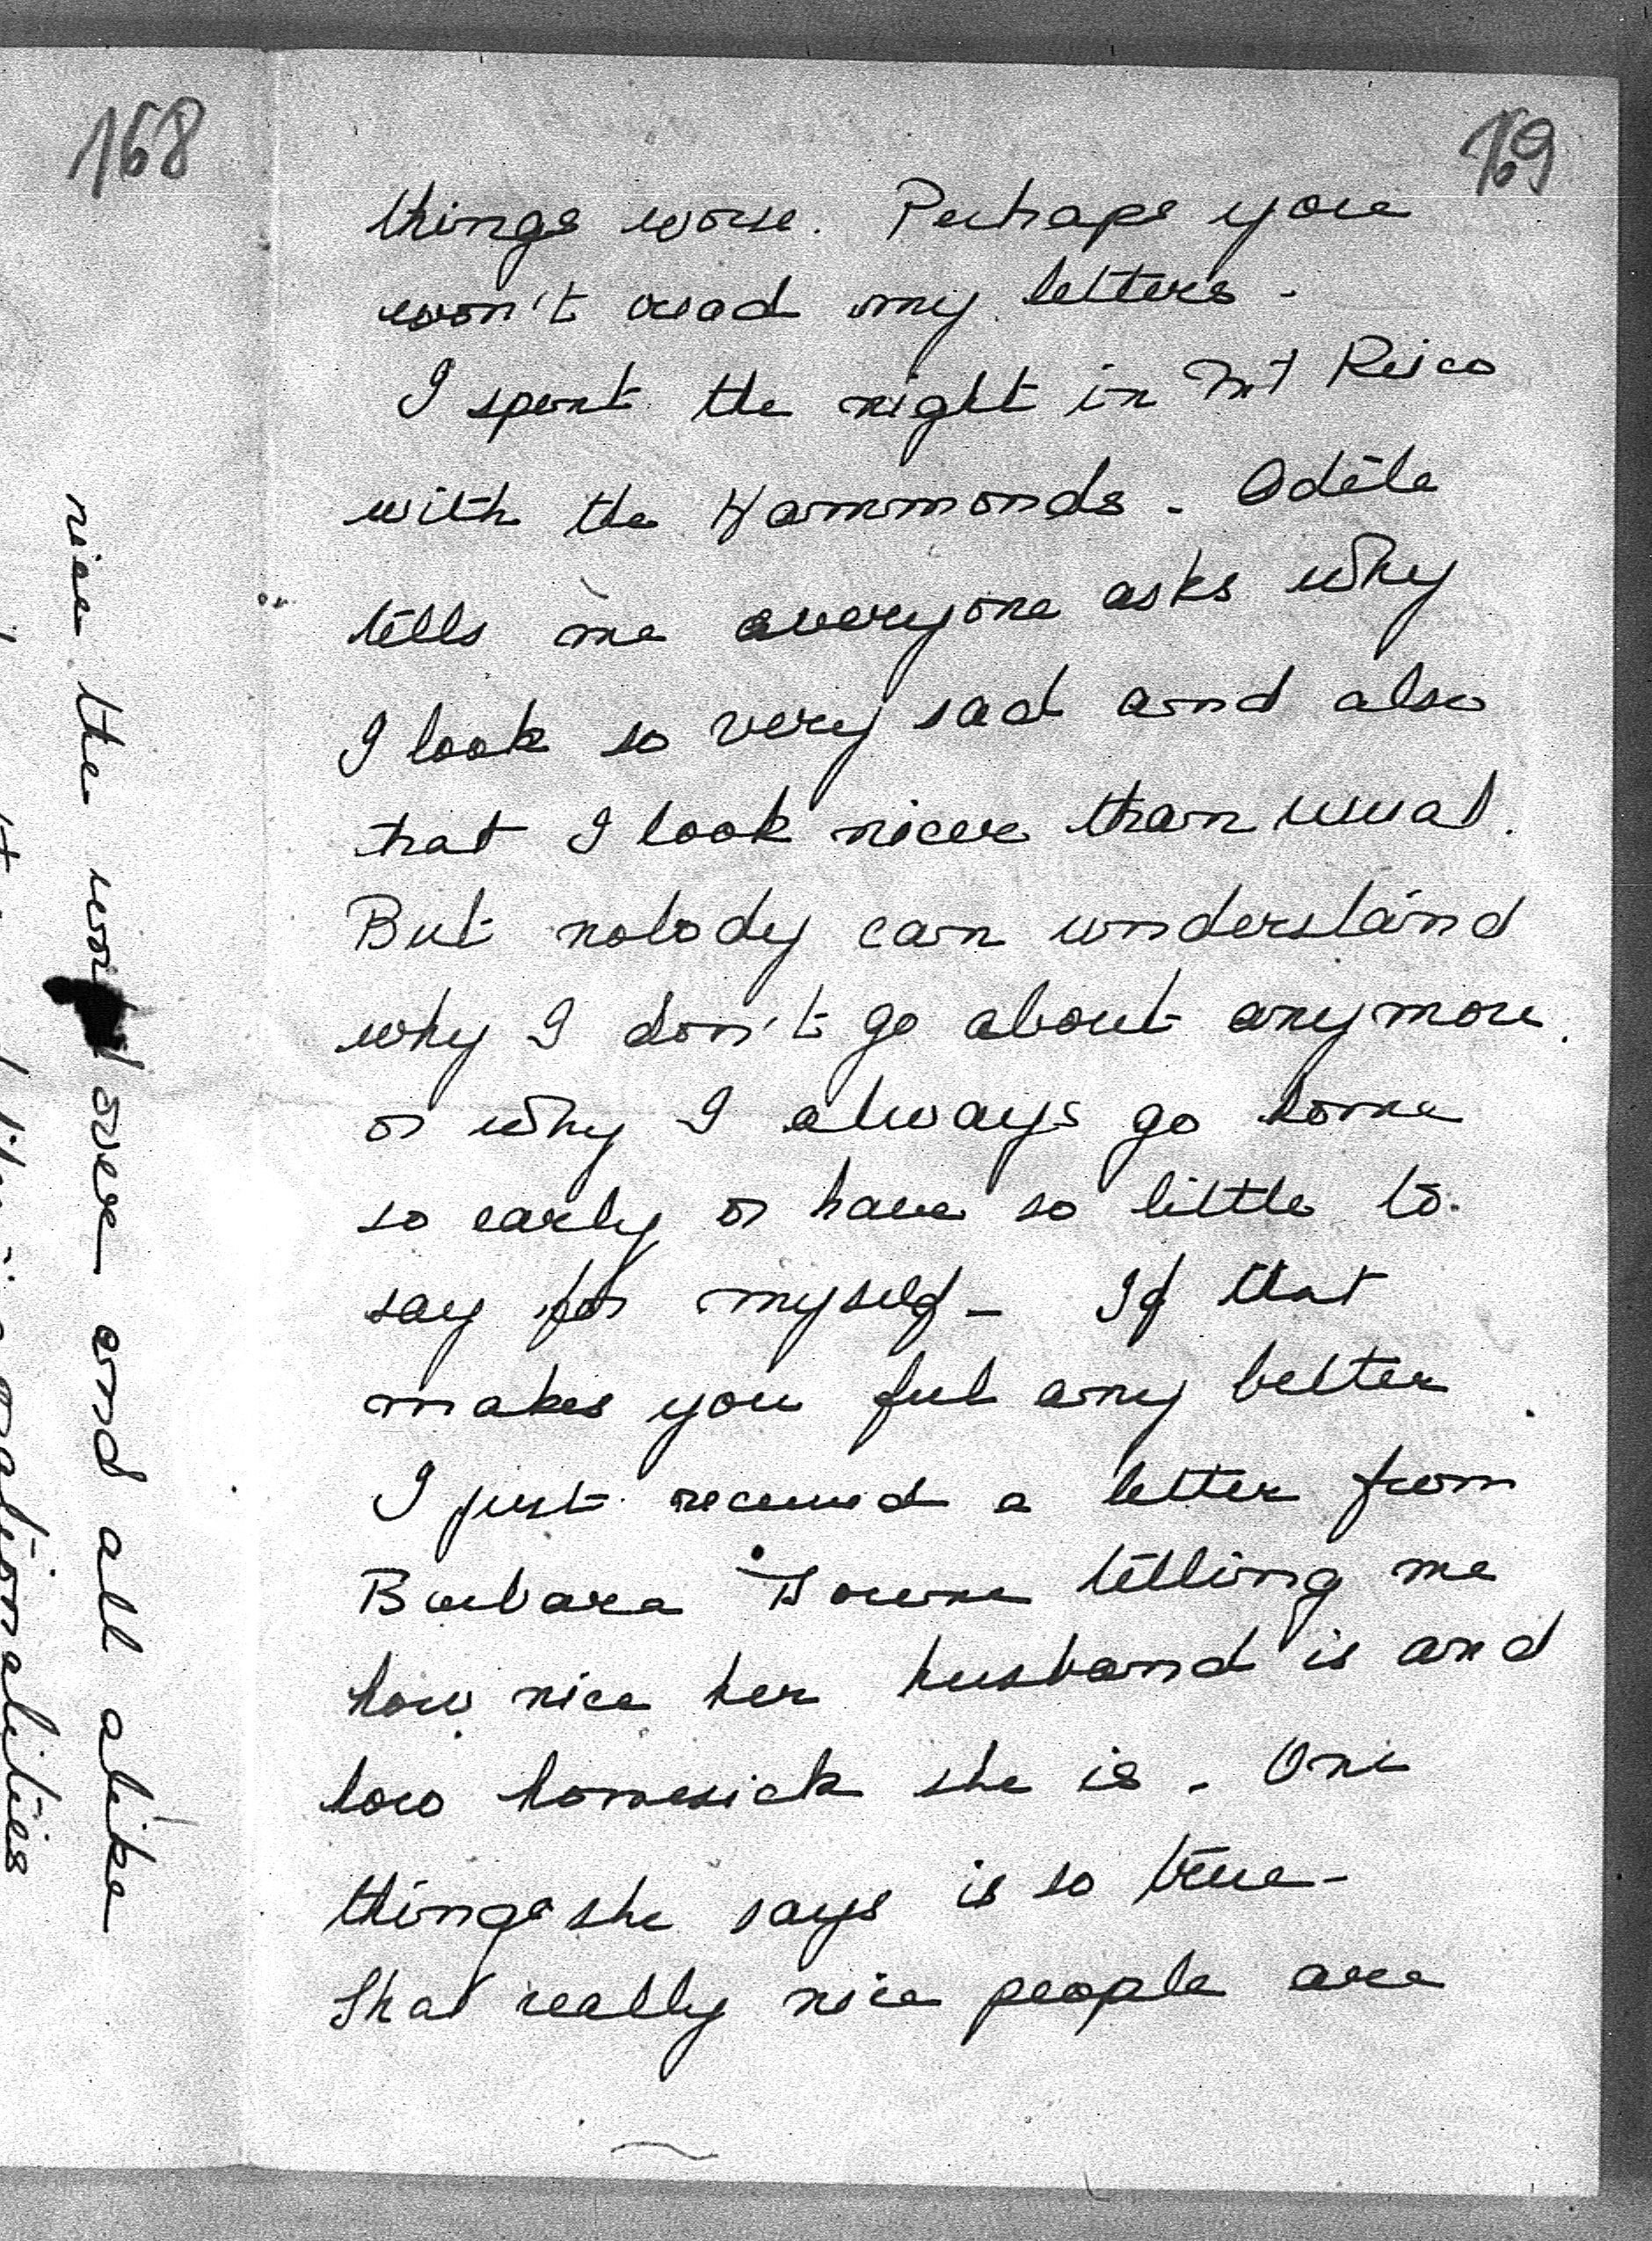 168
169
things worse. Perhaps you
won't read my letters -
I spent the night in Mt Kisco
with the Hammonds - Odèle
tells me everyone asks why
I look so very sad and also
that I look nicer than usual.
But nobody can understand
why I don't go about anymore.
or why I always go home
so early or have so little to
say for myself - If that
makes you feel any better.
I just received a letter from
Barbara telling me
how nice her husband is and
how homesick she is - One
things she says is so true -
that really nice people are
nice the world over and all alike
nationalities